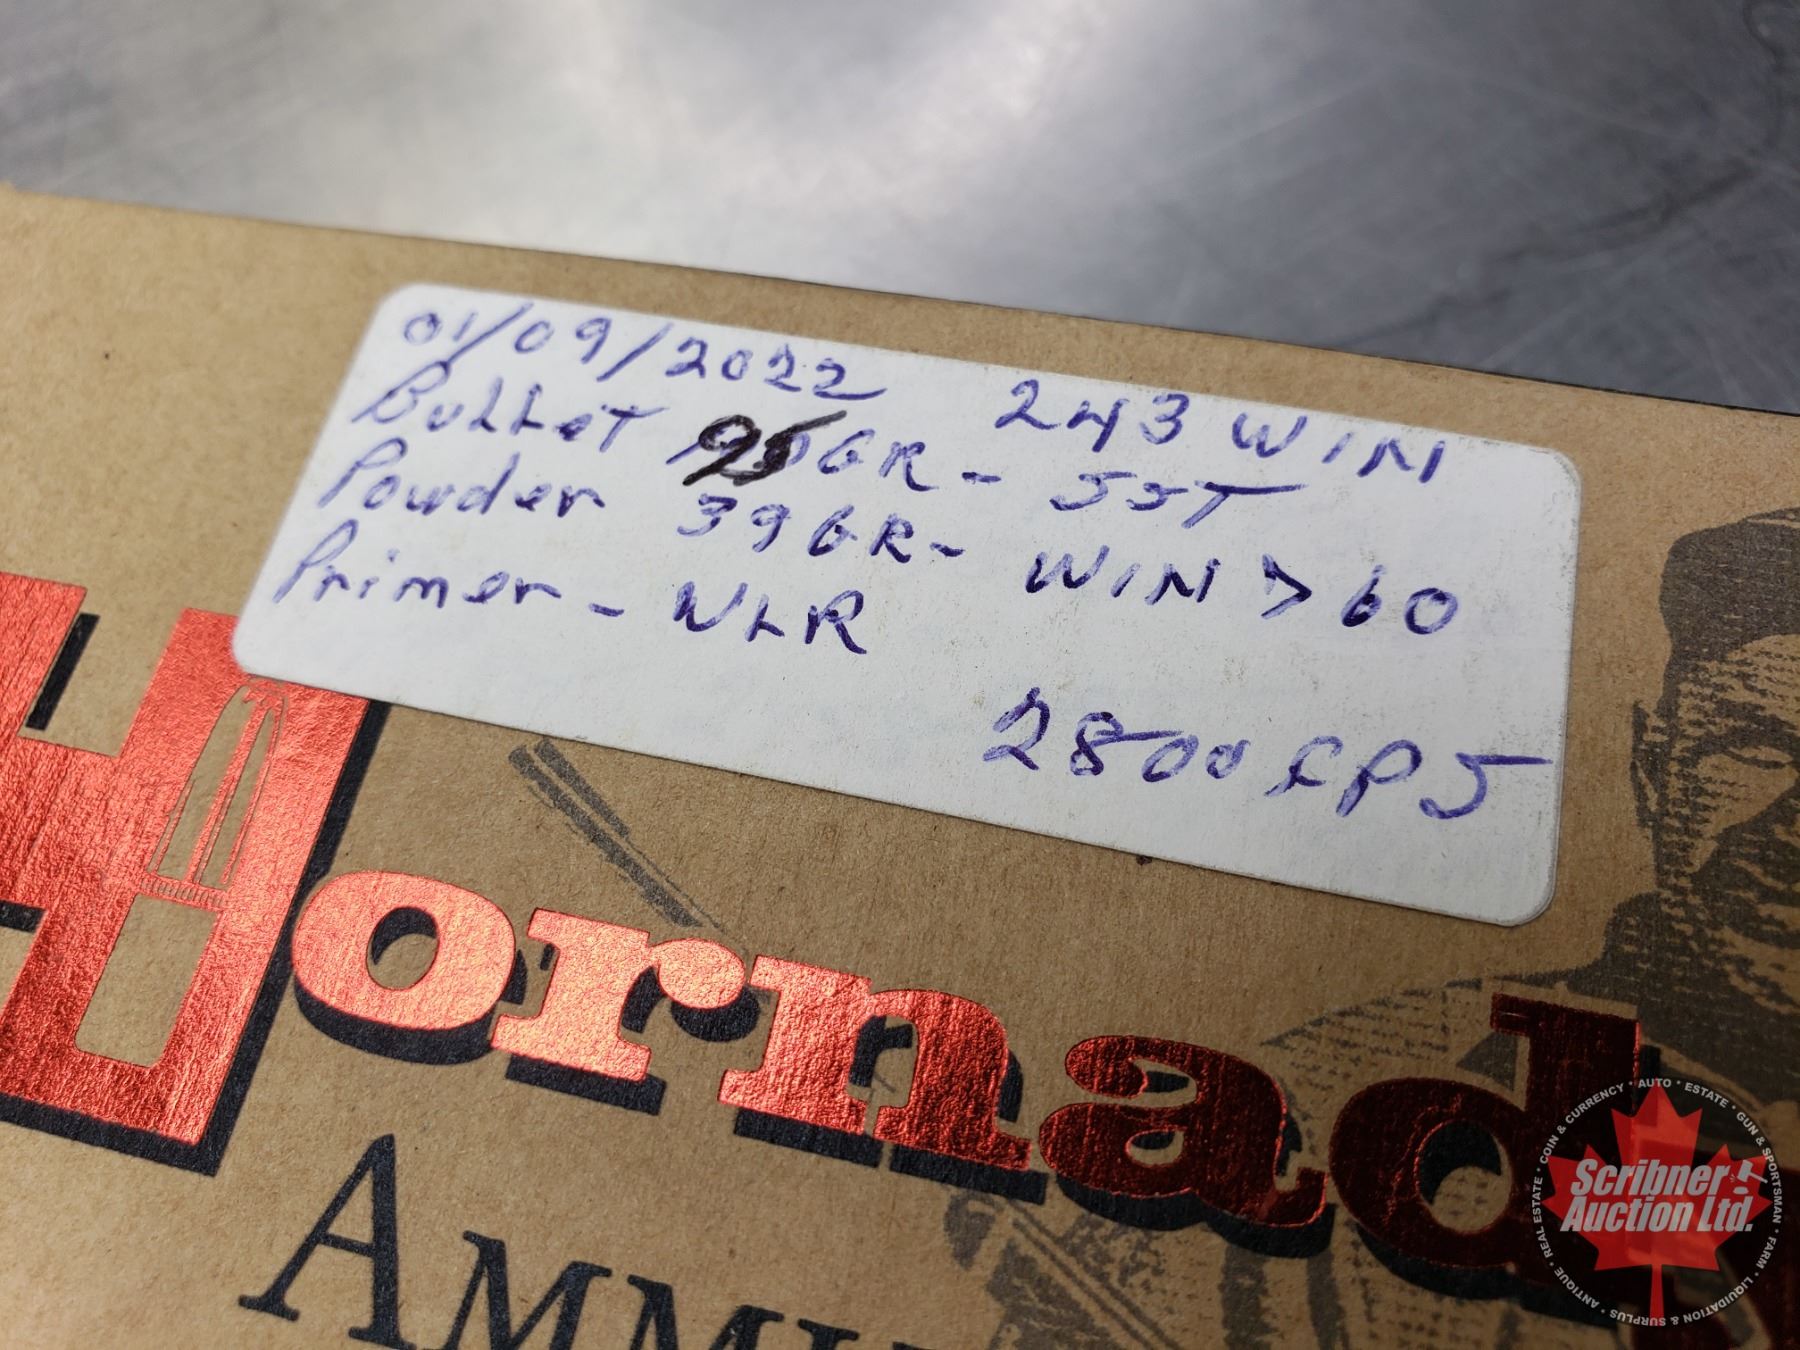 01/09/2022 243 WIN
Bullet 95GR - SST
Powder 39GR - WIN 760
Primer - WLR
2800 fps
Hornad
AMMU
Scribner
Auction Ltd.
ANTIQUE • REAL ESTATE • COIN & CURRENCY • AUTO • ESTATE • GUN & SPORTSMAN • FARM • LIQUIDATION & SURPLUS •